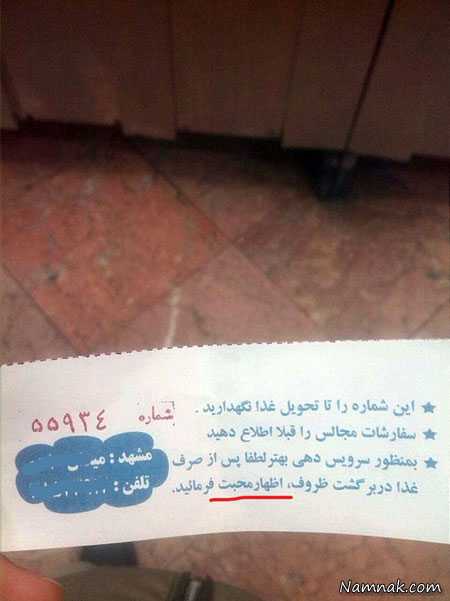 ★ این شماره را تا تحویل غذا نگهدارید.
★ سفارشات مجالس را قبلا اطلاع دهید
★ بمنظور سرویس دهی بهتر لطفا پس از صرف
غذا در برگشت ظروف، اظهار محبت فرمائید.
شماره
۵۵۹۳۴
مشهد :
تلفن :
Namnak.com